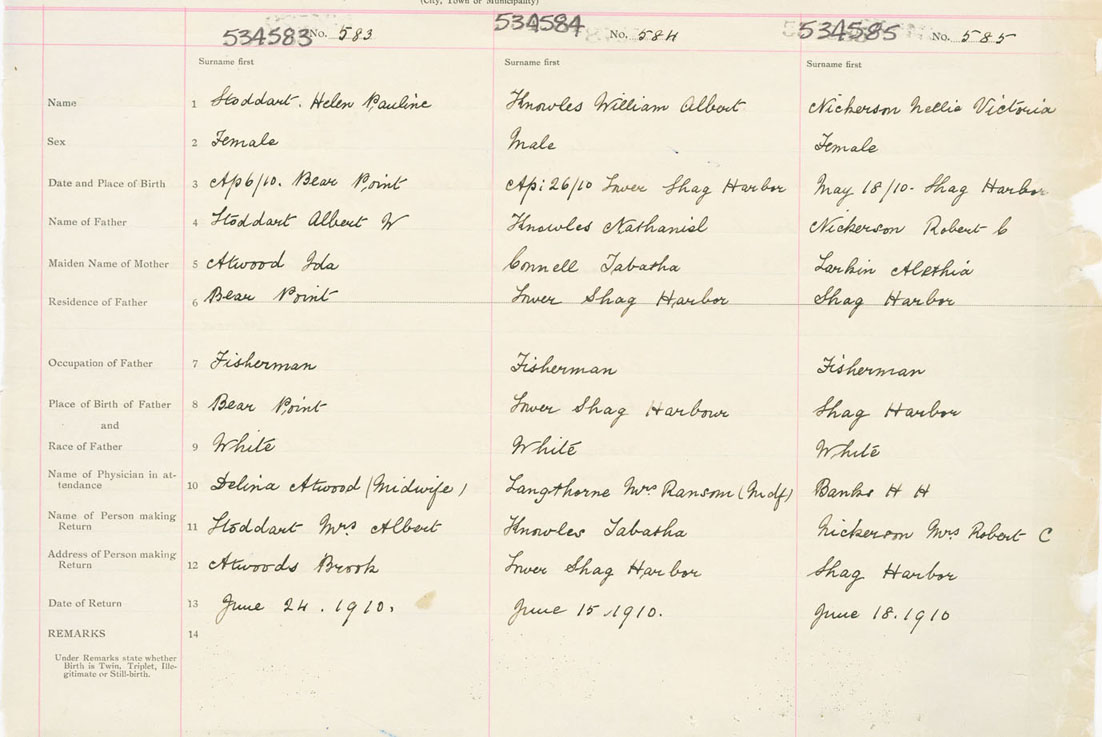 (City, Town or Municipality)
534583 No. 583 534584 No. 584 534585 No. 585
Surname first Surname first Surname first
Name 1 Stoddart. Helen Pauline Knowles William Albert Nickerson Nellie Victoria
Sex 2 Female Male Female
Date and Place of Birth 3 Ap 6/10. Bear Point Api 26/10 Lower Shag Harbor May 18/10- Shag Harbor
Name of Father 4 Stoddart Albert W Knowles Nathaniel Nickerson Robert C
Maiden Name of Mother 5 Atwood Ida Connell Tabatha Larkin Alethia
Residence of Father 6 Bear Point Lower Shag Harbor Shag Harbor
Occupation of Father 7 Fisherman Fisherman Fisherman
Place of Birth of Father 8 Bear Point Lower Shag Harbour Shag Harbor
and
Race of Father 9 White White White
Name of Physician in at-
tendance 10 Delina Atwood (Midwife) Langthorne Mrs Ransom (Mdf) Banks H H
Name of Person making
Return 11 Stoddart Mrs Albert Knowles Tabatha Nickerson Mrs Robert C
Address of Person making
Return 12 Atwoods Brook Lower Shag Harbor Shag Harbor
Date of Return 13 June 24. 1910. June 15, 1910. June 18. 1910
REMARKS 14
Under Remarks state whether
Birth is Twin, Triplet, Ille-
gitimate or Still-birth.